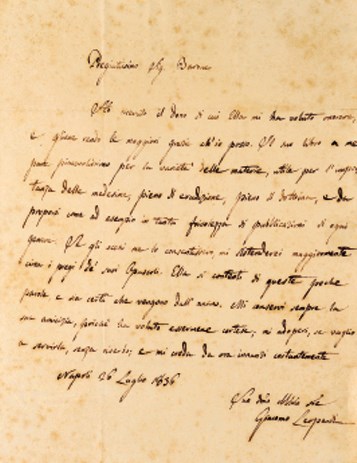 Pregiatissimo Sig. Barone
Ho ricevuto il dono di cui Ella mi ha voluto onorare,
e gliene rendo le maggiori grazie ch'io posso. Il suo libro a me
pare piacevolissimo per la varietà delle materie, utile per l'impor-
tanza delle medesime, pieno di erudizione, pieno di dottrina, e da
proporsi come ad esempio in tanta frivolezza di pubblicazioni di ogni
genere. Se gli occhi me lo consentissero, mi distenderei maggiormente
circa i pregi de' suoi Opuscoli. Ella si contenti di queste poche
parole e sia certa che vengono dall'animo. Mi conservi sempre la
sua amicizia, poichè ha voluto essermene cortese; mi adoperi, se vaglio
a servirla, senza riserbo; e mi creda da ora innanzi costantemente
Napoli 26 Luglio 1836
Suo Giacomo Leopardi